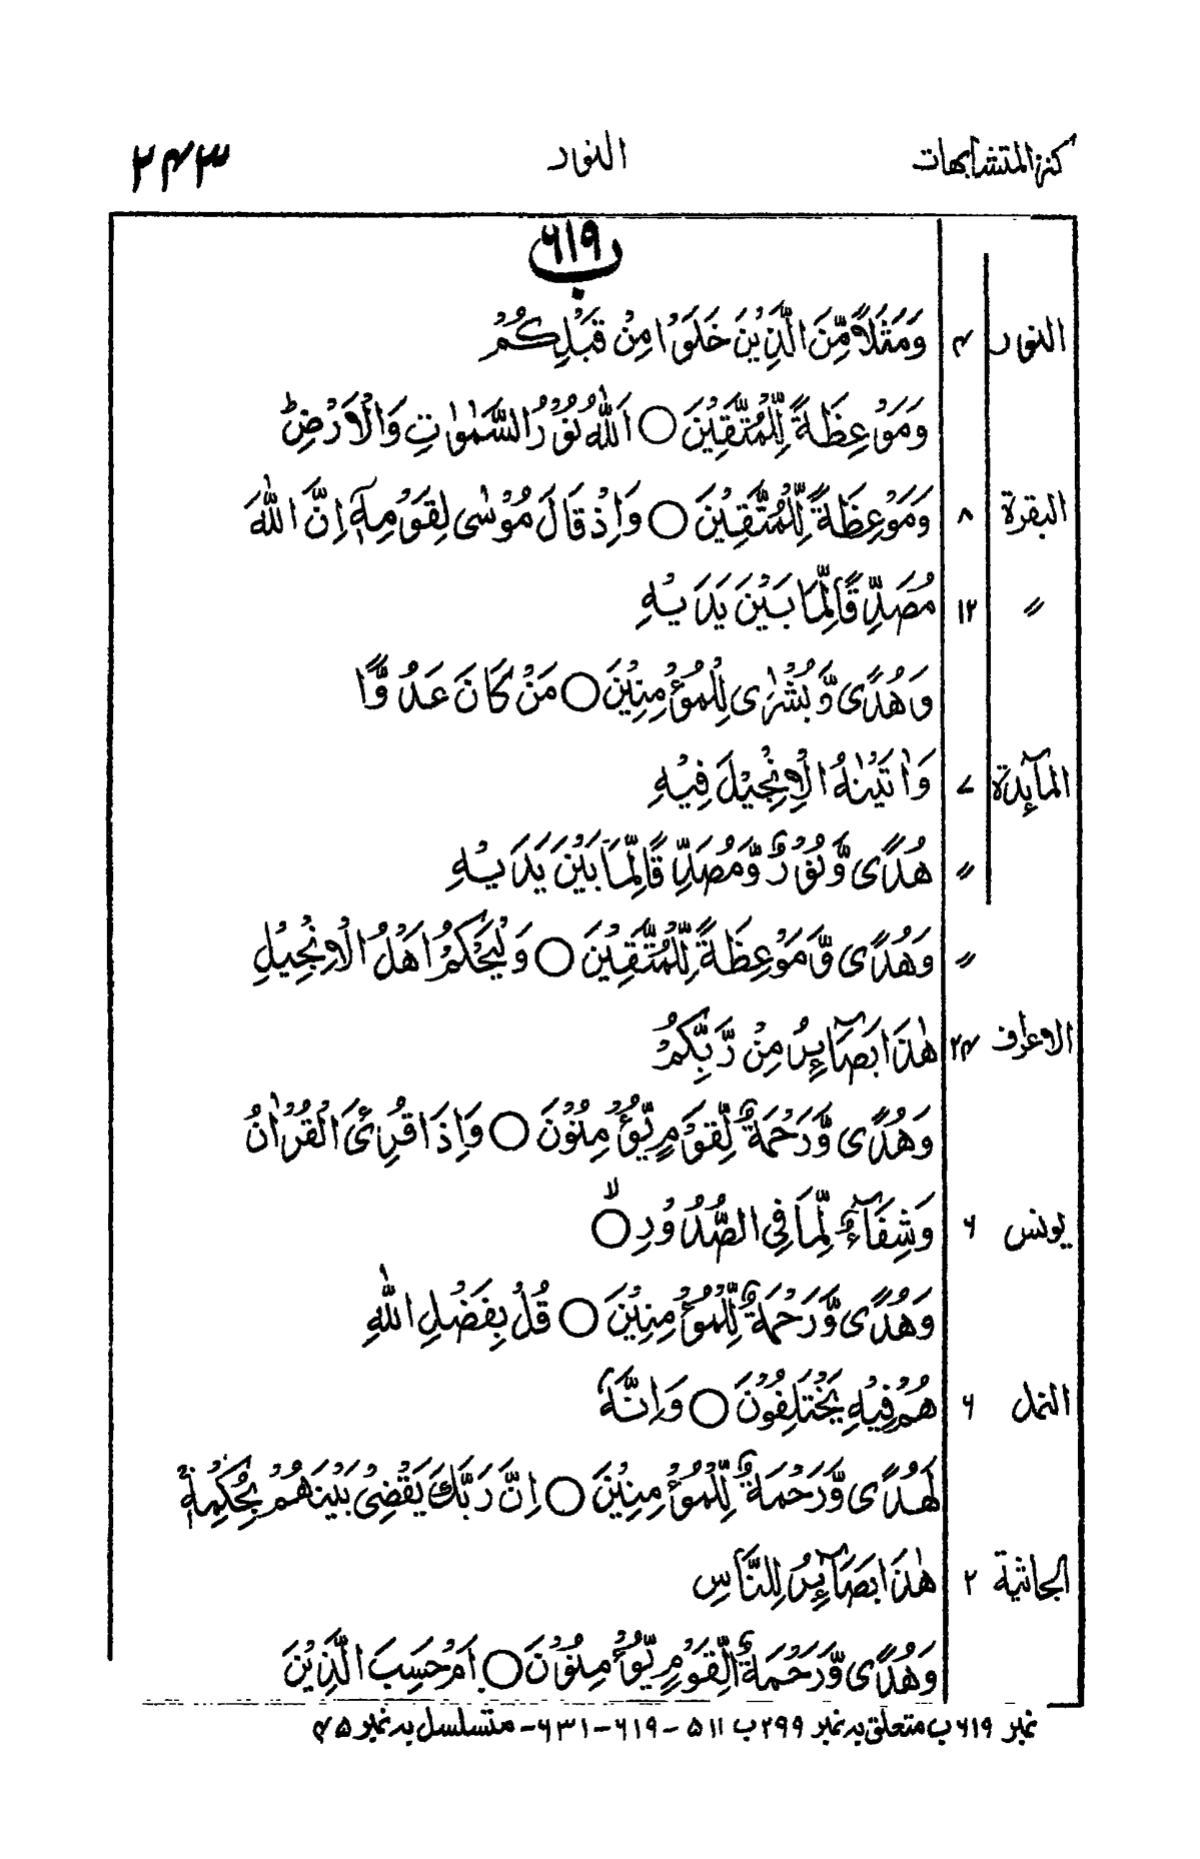 كنز المتشابهات النور ۲۴۳
۶۱۹ ب
النور ۴ وَمَثَلًا مِّنَ الَّذِيْنَ خَلَوْا مِنْ قَبْلِكُمْ
وَمَوْعِظَةً لِّلْمُتَّقِيْنَ ○ اَللّٰهُ نُوْرُ السَّمٰوٰتِ وَالْاَرْضِ ؕ
البقرة ۸ وَمَوْعِظَةً لِّلْمُتَّقِيْنَ ○ وَاِذْ قَالَ مُوْسٰى لِقَوْمِهٖۤ اِنَّ اللّٰهَ
〃 ۱۲ مُصَدِّقًا لِّمَا بَيْنَ يَدَيْهِ
وَهُدًى وَّبُشْرٰى لِلْمُؤْمِنِيْنَ ○ مَنْ كَانَ عَدُوًّا
المآئدة ۷ وَاٰتَيْنٰهُ الْاِنْجِيْلَ فِيْهِ
〃 هُدًى وَّنُوْرٌ وَّمُصَدِّقًا لِّمَا بَيْنَ يَدَيْهِ
〃 وَهُدًى وَّمَوْعِظَةً لِّلْمُتَّقِيْنَ ○ وَلْيَحْكُمْ اَهْلُ الْاِنْجِيْلِ
الاعراف ۲۴ هٰذَا بَصَآئِرُ مِنْ رَّبِّكُمْ
وَهُدًى وَّرَحْمَةٌ لِّقَوْمٍ يُّؤْمِنُوْنَ ○ وَاِذَا قُرِئَ الْقُرْاٰنُ
يونس ۶ وَشِفَآءٌ لِّمَا فِى الصُّدُوْرِ ۙ○
وَهُدًى وَّرَحْمَةٌ لِّلْمُؤْمِنِيْنَ ○ قُلْ بِفَضْلِ اللّٰهِ
النمل ۶ هُمْ فِيْهِ يَخْتَلِفُوْنَ ○ وَاِنَّهٗ
لَهُدًى وَّرَحْمَةٌ لِّلْمُؤْمِنِيْنَ ○ اِنَّ رَبَّكَ يَقْضِىْ بَيْنَهُمْ بِحُكْمِهٖ ۚ
الجاثية ۲ هٰذَا بَصَآئِرُ لِلنَّاسِ
وَهُدًى وَّرَحْمَةٌ لِّقَوْمٍ يُّؤْمِنُوْنَ ○ اَمْ حَسِبَ الَّذِيْنَ
نمبر ۶۱۹ ب متعلق بہ نمبر ۲۹۹ ب ۵۱۱ - ۶۱۹ - ۶۳۱ - متسلسل بہ نمبر ۴۵